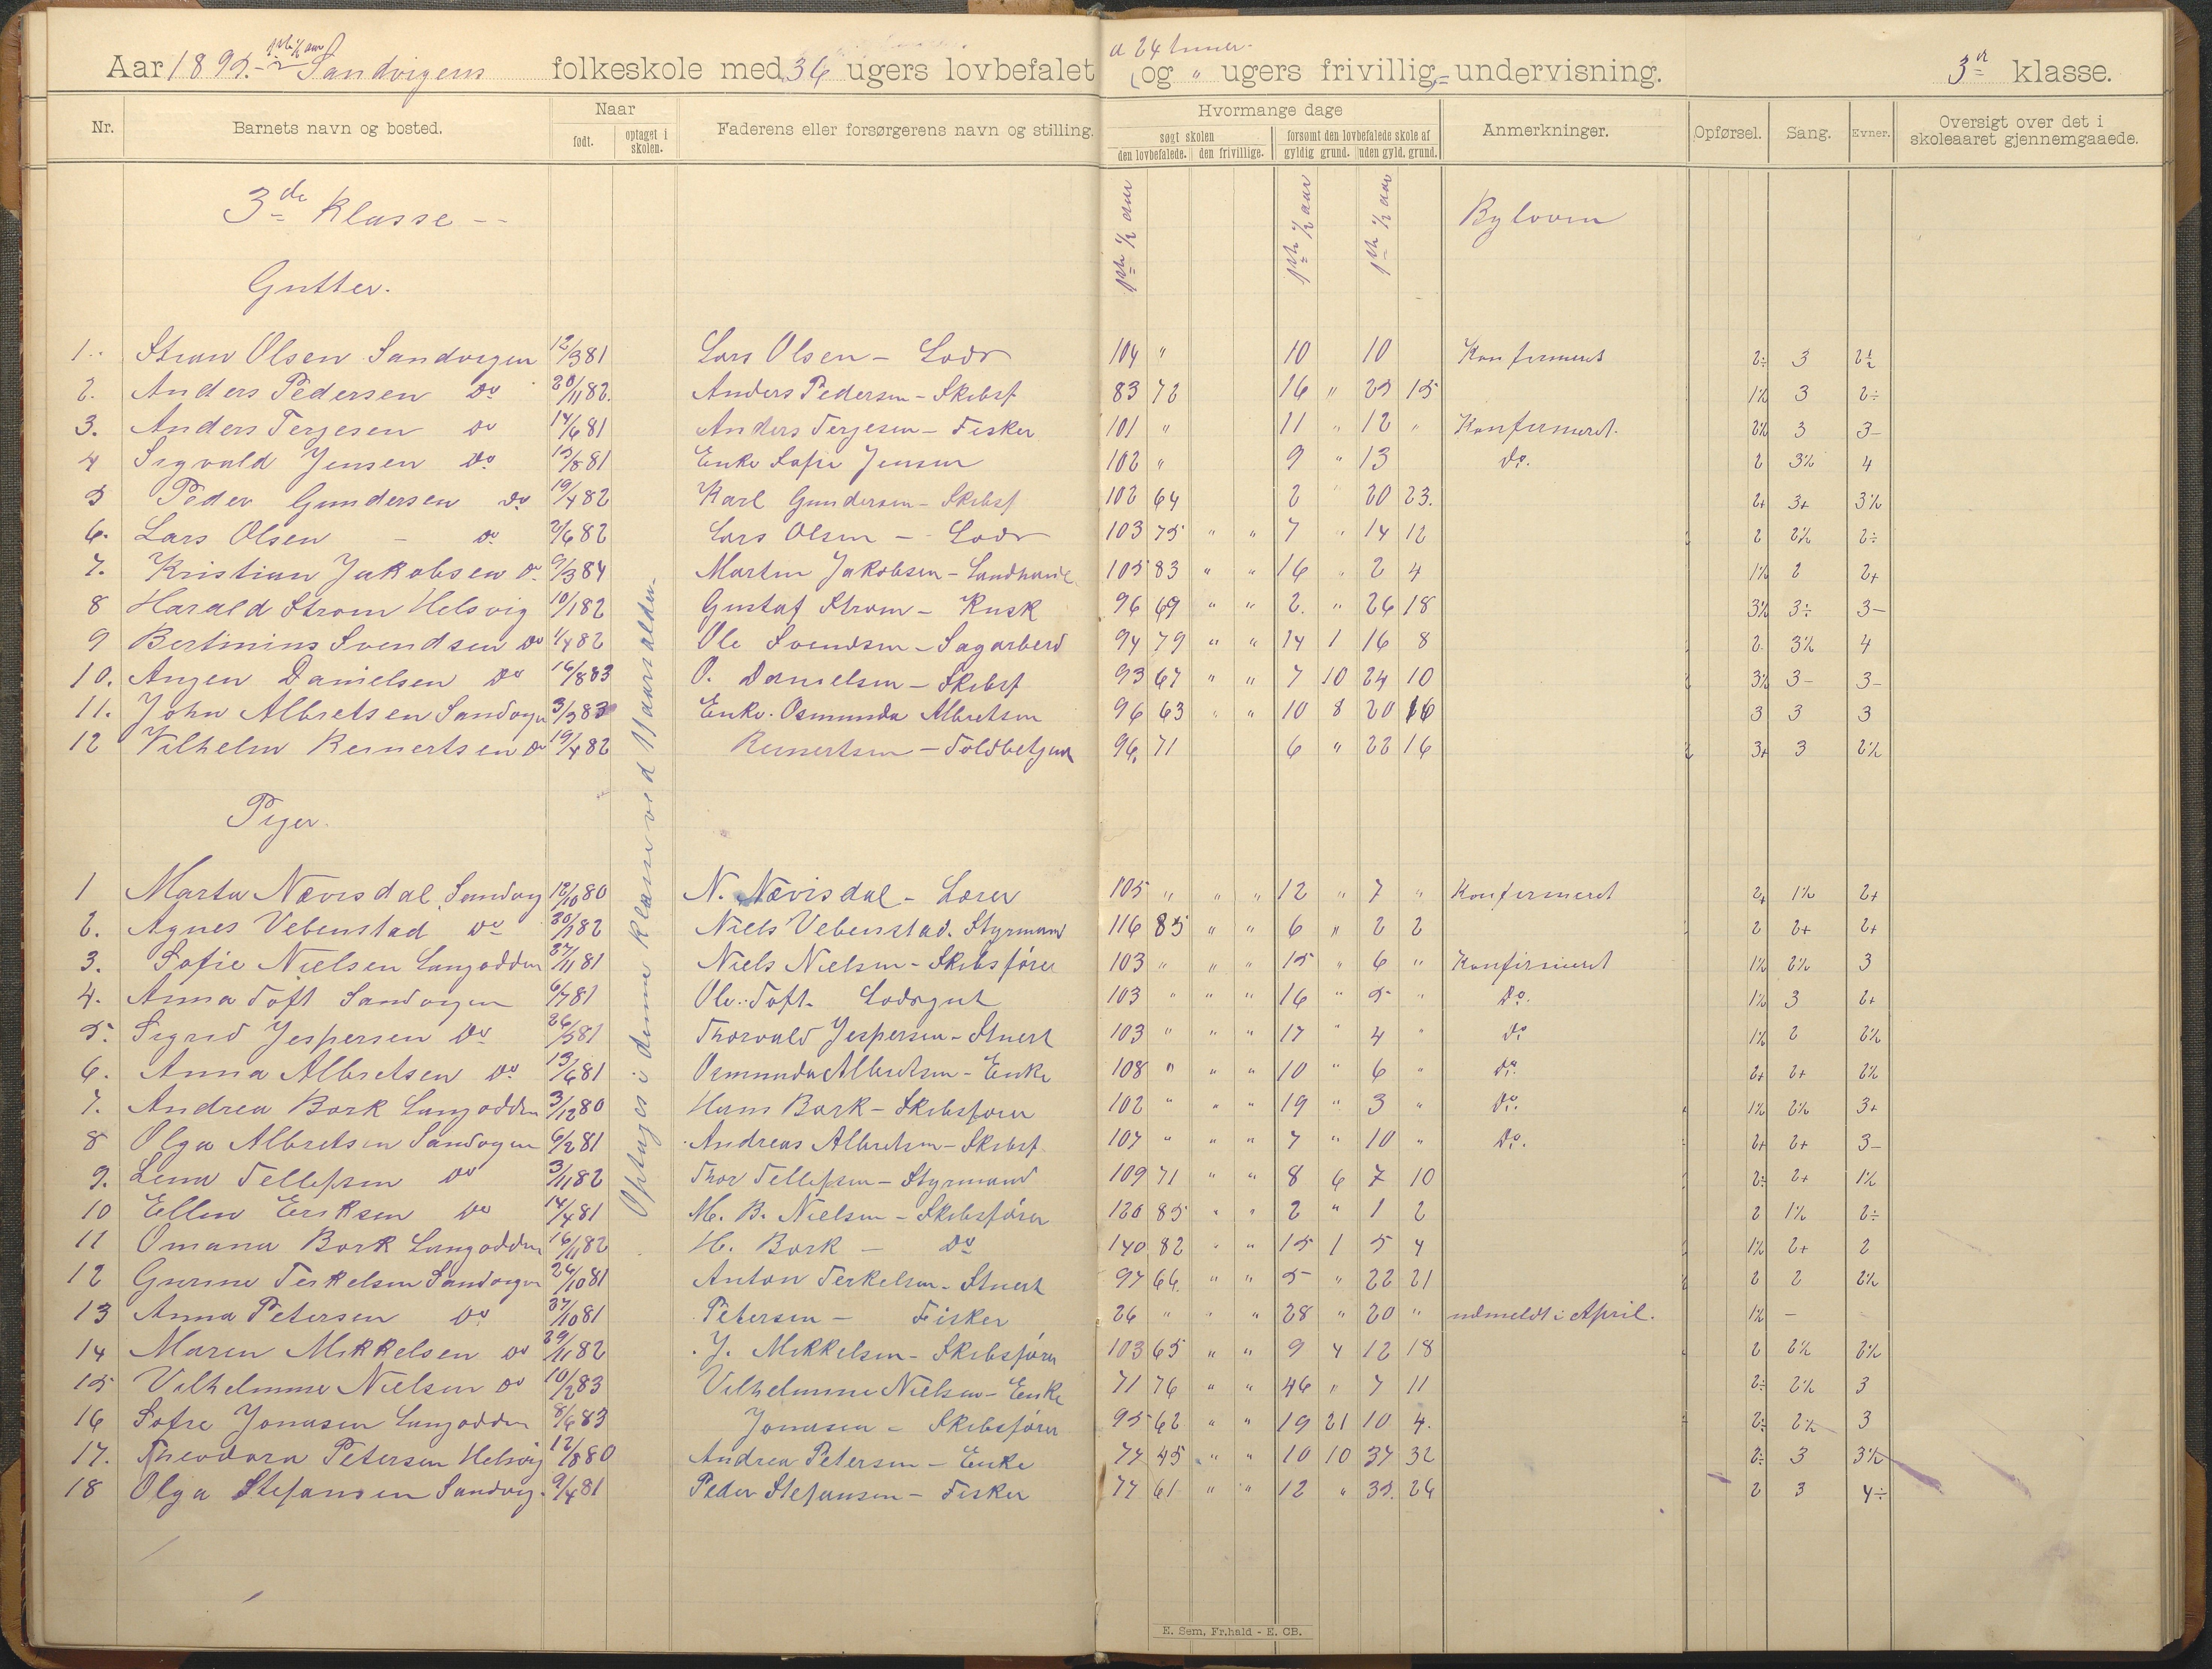 1ste ½ aar a 24 timer.
Aar 1895. Sandvigens folkeskole med 36 ugers lovbefalet (og " ugers frivillig)= undervisning. 3de klasse.
Nr. Barnets navn og bosted. Naar født. optaget i skolen. Faderens eller forsørgerens navn og stilling. Hvormange dage søgt skolen den lovbefalede. den frivillige. forsømt den lovbefalede skole af gyldig grund. uden gyld. grund. Anmerkninger. Opførsel. Sang. Evner. Oversigt over det i skoleaaret gjennemgaaede.
3de Klasse -- 1ste ½ aar 1ste ½ aar 1ste ½ aar Byloven
Gutter.
1. Olsen Sandvigen 12/3 81 Lars Olsen - Lods 104 " 10 10 Konfirmeret 2÷ 3
2. Anders Pedersen do 20/11 82. Anders Pedersen - Skibsf 83 72 16 " 25 15 1½ 3 2÷
3. Anders Terjesen do 14/6 81 Anders Terjesen - Fisker 101 " 11 " 12 " Konfirmeret. 2½ 3 3-
4 Sigvald Jensen do 15/8 81 Enke Sofie Jensen 102 " 9 " 13 do. 2 3½ 4
5 Peder Gundersen do 19/4 82 Karl Gundersen - Skibsf 102 64 2 " 20 23. 2+ 3+ 3½
6. Lars Olsen - do 2/6 82 Lars Olsen - Lods 103 75 " " 7 " 14 12 2 2½ 2÷
7. Kristian Jakobsen do 9/3 84 Martin Jakobsen - Landhandl 105 83 " " 16 " 2 4 1½ 2 2+
8 Harald Strøm Helsvig 10/1 82 Gustaf Strøm - Kusk 96 69 " " 2. " 26 18 3½ 3÷ 3-
9 Bertinius Svendsen do 1/4 82 Ole Svendsen - Sagarbeid 94 79 " " 14 1 16 8 2. 3½ 4
10. Angen Danielsen do 16/8 83 O. Danielsen - Skibsf 93 67 " " 7 10 24 10 3½ 3- 3-
11. John Albretsen Sandvigen 3/3 83 Enke. Osmunda Albretsen 96 63 " " 10 8 20 16 3 3 3
12 Vilhelm Reinertsen do 19/4 82 Reinertsen - Toldbetjent 96. 71 6 " 22 16 3+ 3 2½
Piger.
1 Marta Nævisdal Sandvig 12/10 80 N. Nævisdal - Lærer 105 " " " 12 " 7 " Konfirmeret 2+ 1½ 2+
2. Agnes Vebenstad do 30/1 82 Niels Vebenstad. Styrmand 116 85 " " 6 " 2 2 2 2+ 2+
3. Sofie Nielsen Langodden 27/11 81 Niels Nielsen - Skibsfører 103 " " " 15 " 6 " Konfirmeret 1½ 2½ 3
4. Anna Toft Sandvigen 6/7 81 Ole Toft - Lodsgut 103 " " " 16 " 5 " Do. 1½ 3 2+
5. Sigrid Jespersen do 26/3 81 Thorvald Jespersen - Stuert 103 " " " 17 " 4 " do 1½ 2 2½
6. Anna Albretsen do 13/6 81 Osmunda Albretsen - Enke 108 " " " 10 " 6 " do. 2+ 2+ 2½
7. Andrea Bork Langodden 3/12 80 Hans Bork - Skibsfører 102 " " " 19 " 3 " do. 1½ 2½ 3+
8 Olga Albretsen Sandvigen 6/2 81 Andreas Albretsen - Skibsf 107 " " " 7 " 10 " Do. 2+ 2+ 3-
9. Lena Tellefsen do 3/11 82 Thor Tellefsen - Styrmand 109 71 " " 8 6 7 10 2÷ 2+ 1½
10 Ellen Eriksen do 14/4 81 M. B. Nielsen - Skibsfører 120 85 " " 2 " 1 2 2 1½ 2÷
11 Omana Bork Langodden 16/11 82 H. Bork - do 140 82 " " 15 1 5 4 1½ 2+ 2
12 Gurine Terkelsen Sandvigen 26/10 81 Anton Terkelsen - Stuert 97 66. " " 5 " 22 21 2 2 2½
13 Anna Petersen do 27/10 81 Petersen - Fisker 26 " " " 28 " 20 " udmeldt i April. 1½ -
14 Maren Mikkelsen do 29/11 82 J. Mikkelsen - Skibsfører 103 65 " " 9 4 12 18 2 2½ 2½
15 Vilhelmine Nielsen do 10/2 83 Vilhelmine Nielsen - Enke 71 76 " " 46 " 7 11 2÷ 2½ 3
16 Sofie Jonasen Langodden 8/6 83 Jonasen - Skibsfører 95 62 " " 19 21 10 4. 2÷ 2½ 3
17. Theodora Petersen Helsvig 12/8 80 Andrea Petersen - Enke 77 45 " " 10 10 37 32 2÷ 3 3½
18 Olga Stefansen Sandvig. 9/4 81 Peder Stefansen - Fisker 77 61 " " 12 " 35. 26 2 3 4÷
Optages i denne klasse ved 11 aars alderen
E. Sem, Fr.hald - E. CB.